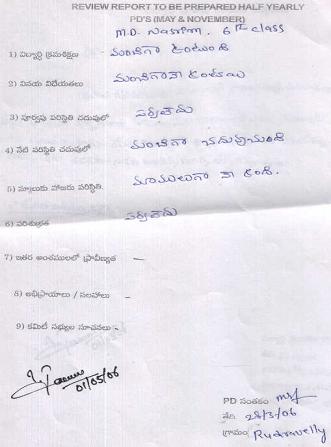 REVIEW REPORT TO BE PREPARED HALF YEARLY
PD'S (MAY & NOVEMBER)
M.D. Nasrim. 6th class
1) విద్యార్థి క్రమశిక్షణ - మంచిగా ఉంటుంది
2) వినయ విధేయతలు మంచిగా
3) పూర్వపు పరిస్థితి చదువులో
4) నేటి పరిస్థితి చదువులో మంచిగా చదువుచుంది
5) స్కూలుకు హాజరు పరిస్థితి. మామూలుగా
6) పరిశుభ్రత
7) ఇతర అంశములలో ప్రావీణ్యత -
8) అభిప్రాయాలు / సలహాలు -
9) కమిటీ సభ్యుల సూచనలు -
01/05/06
PD సంతకం
తేది. 28/3/06
గ్రామం Rudravelly